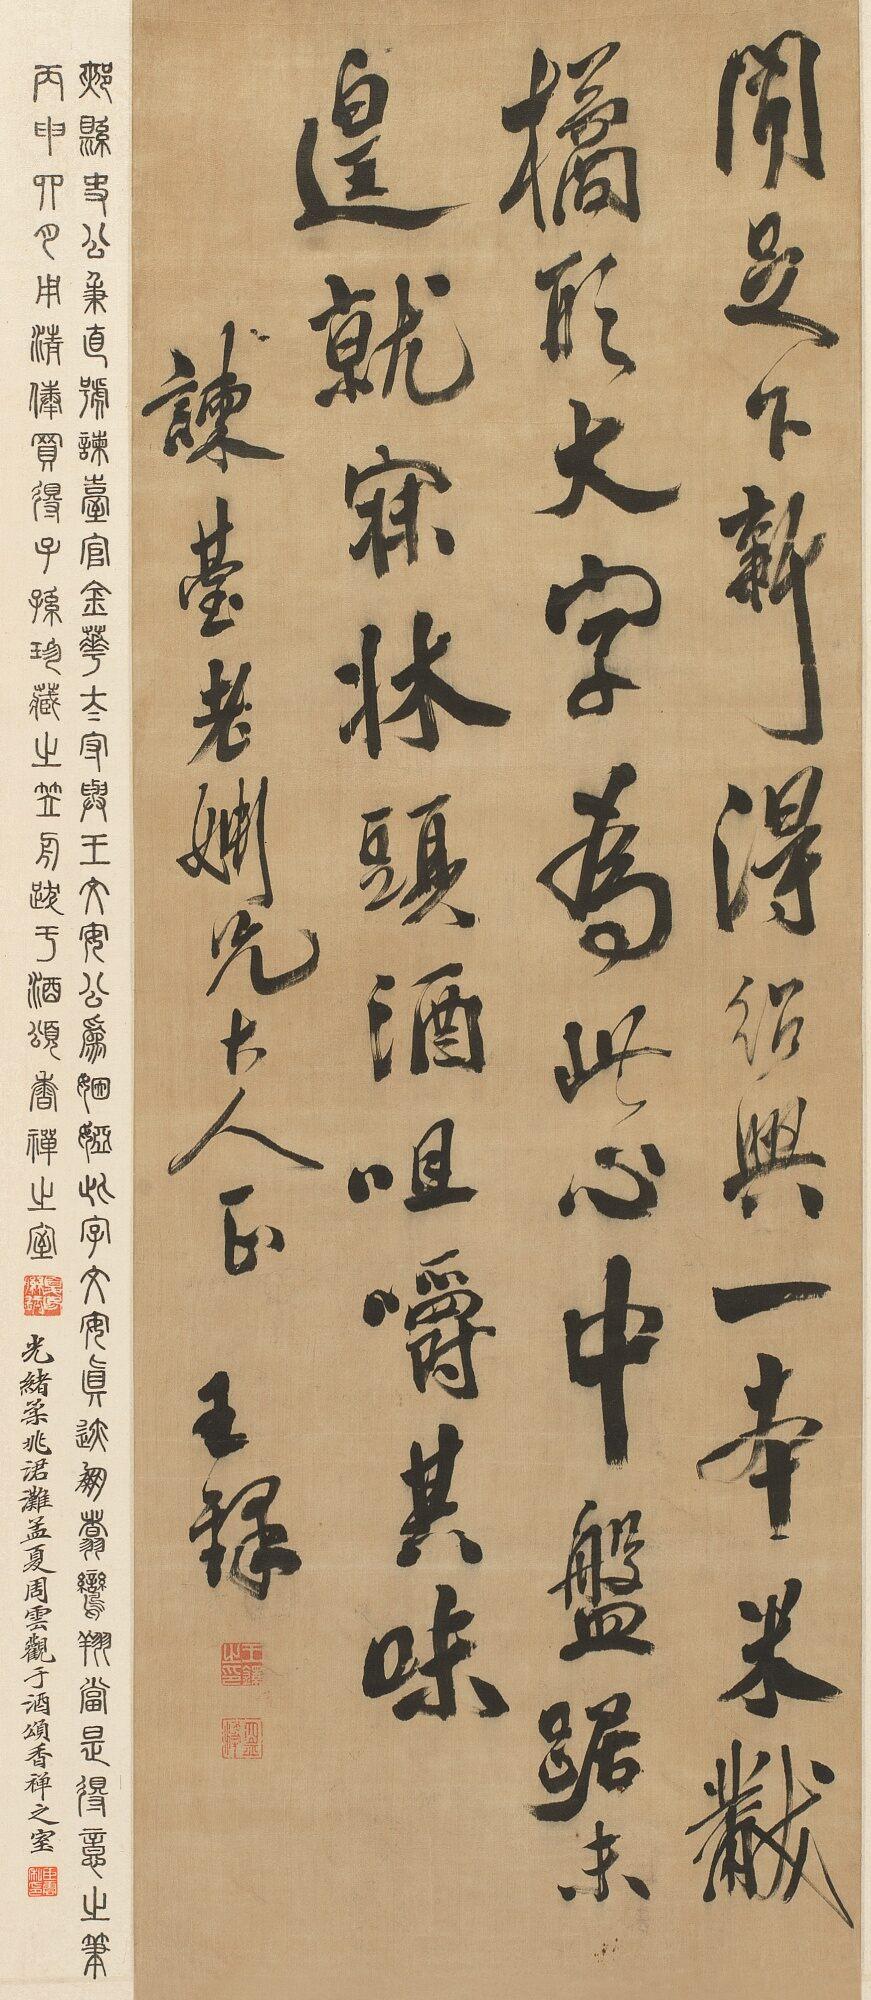 聞足下新得紹興一本米黻
橘形大字為此心中盤踞未
遑就寐牀頭酒咀嚼其味
諫臺老姻兄大人正
王鐸
郟縣史公秉直號諫臺官金華太守與王文安公為姻婭此字文安真迹翱翥鸞翔當是得意之筆
丙申四月用清俸買得子孫珍藏之笠舟跋于酒頌香禪之室
光緒柔兆涒灘孟夏周雲觀于酒頌香禅之室
王鐸之印